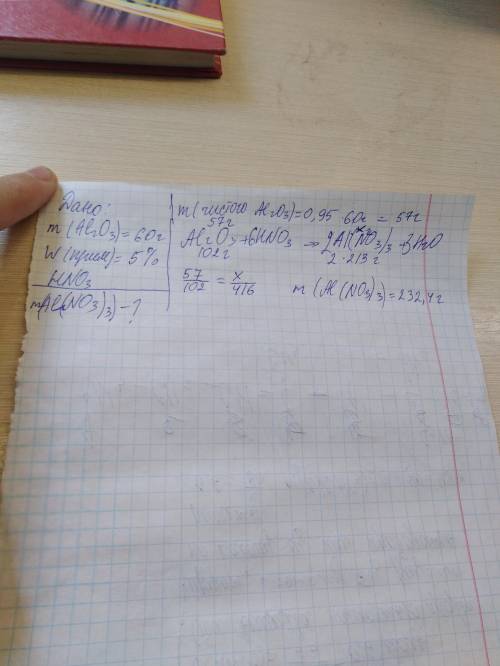 Дано:
m(Al₂O₃)=60г
W(прим)=5%
HNO₃
m(Al(NO₃)₃)-?
m(чистого Al₂O₃)=0,95·60г=57г
57г x
Al₂O₃+6HNO₃ → 2Al(NO₃)₃+3H₂O
102г 2·213г
57/102 = x/416 m(Al(NO₃)₃)=232,4г